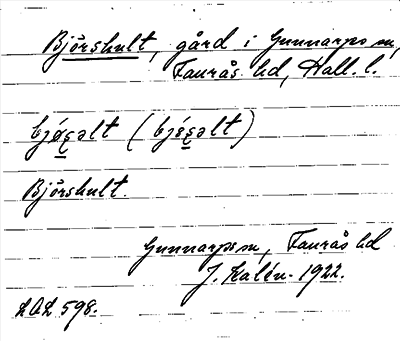 Björshult, gård i Gunnarps sn,
Faurås hd, Hall. l.
bjǿʂəlt (bjǿʂəlt)
Björshult.
Gunnarps sn, Faurås hd
J. Kalén. 1922.
LAL 598.